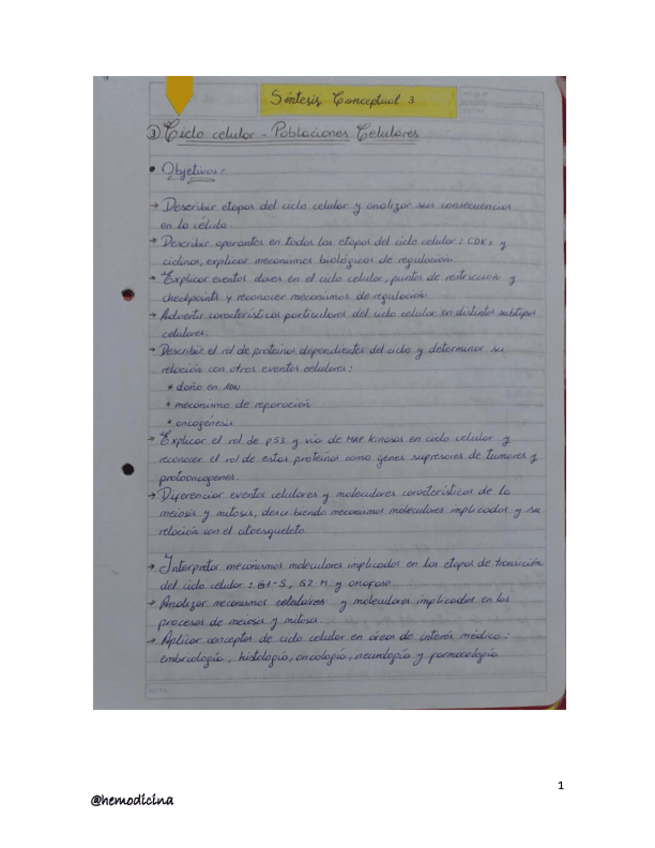 Síntesis Conceptual 3
③ Ciclo celular - Poblaciones Celulares
• Objetivos:
→ Describir etapas del ciclo celular y analizar sus consecuencias
en la célula
→ Describir operantes en todas las etapas del ciclo celular: CDKs y
ciclinas, explicar mecanismos biológicos de regulación.
→ Explicar eventos claves en el ciclo celular, puntos de restricción y
checkpoints y reconocer mecanismos de regulación
→ Advertir características particulares del ciclo celular en distintos subtipos
celulares.
→ Describir el rol de proteínas dependientes del ciclo y determinar su
relación con otros eventos celulares:
* daño en ADN
* mecanismo de reparación
* oncogénesis
→ Explicar el rol de p53 y vía de MAP Kinasas en ciclo celular y
reconocer el rol de estas proteínas como genes supresores de tumores y
protooncogenes.
→ Diferenciar eventos celulares y moleculares característicos de la
meiosis y mitosis, describiendo mecanismos moleculares implicados y su
relación con el citoesqueleto
→ Interpretar mecanismos moleculares implicados en las etapas de transición
del ciclo celular: G1-S, G2-M y anafase.
→ Analizar mecanismos celulares y moleculares implicados en los
procesos de meiosis y mitosis.
→ Aplicar conceptos de ciclo celular en áreas de interés médico:
embriología, histología, oncología, neurología y farmacología
NOTA
1
@hemodicina